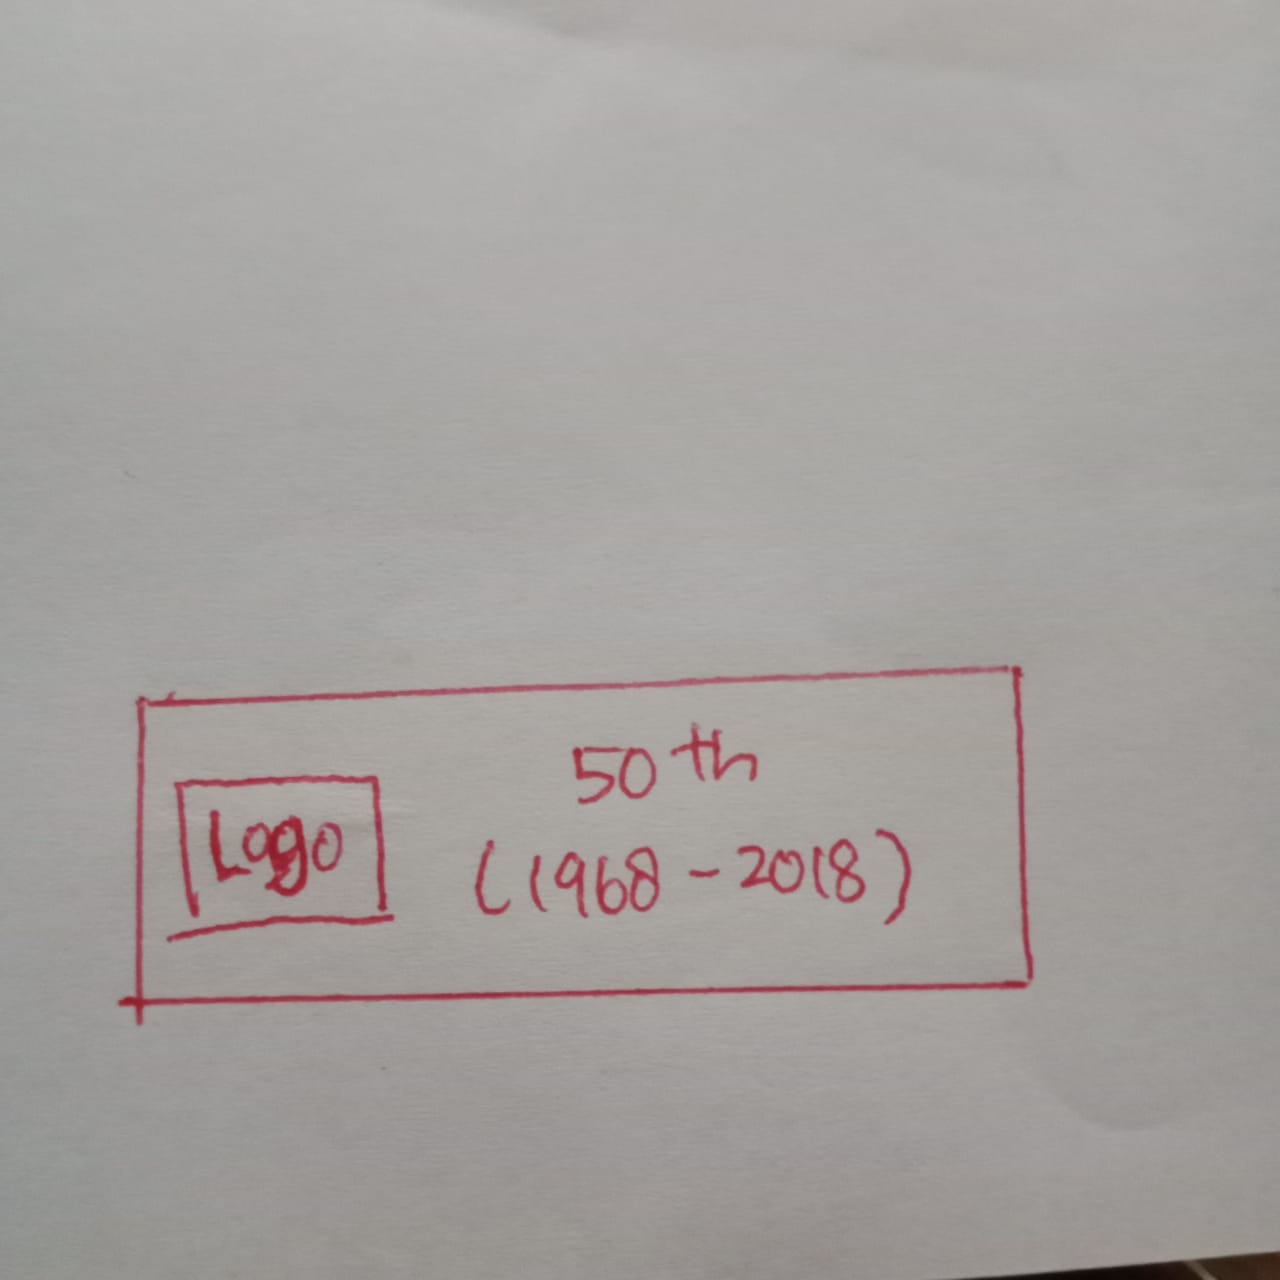 Logo
50th
(1968-2018)